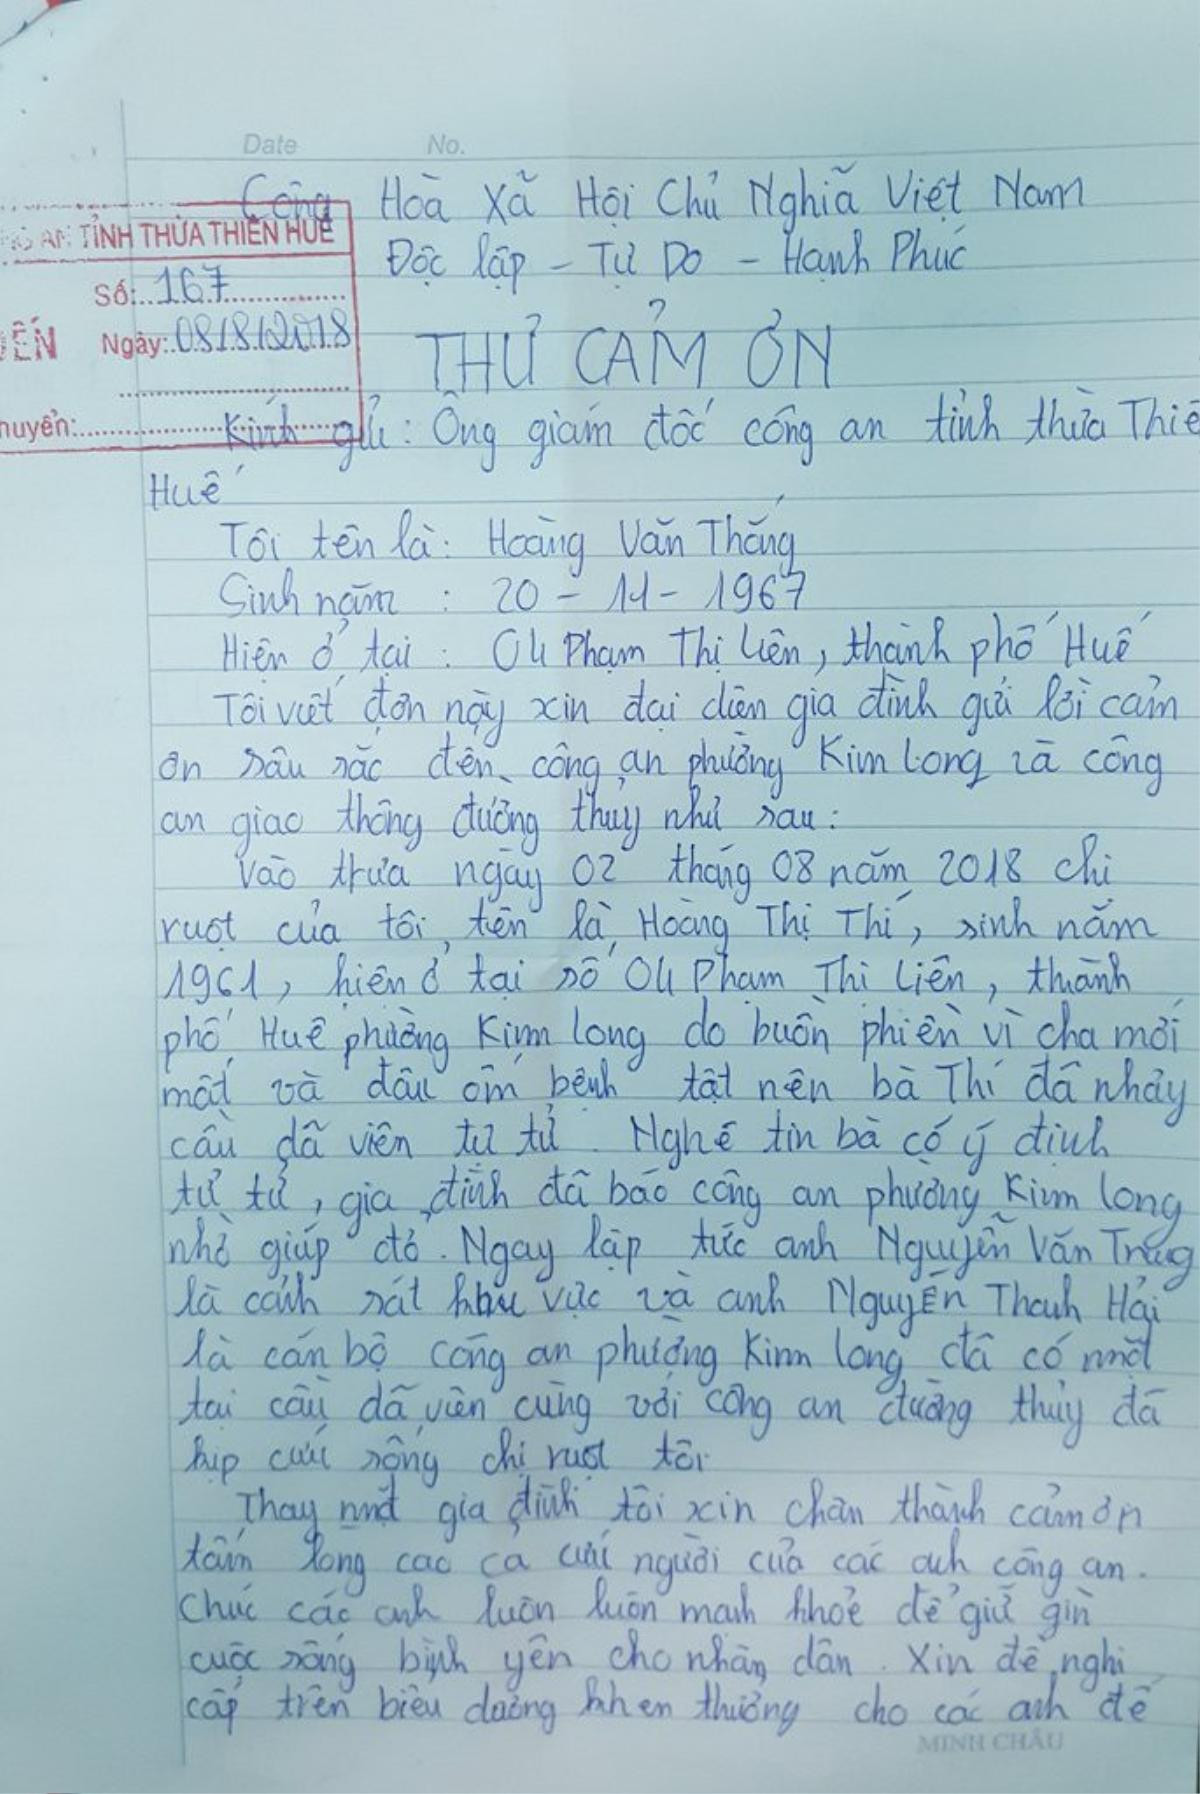 Date No.
Cộng Hoà Xã Hội Chủ Nghĩa Việt Nam
AN TỈNH THỪA THIÊN HUẾ
Độc lập - Tự Do - Hạnh Phúc
Số: 167
ĐẾN Ngày: 08/8/2018
THƯ CẢM ƠN
huyển:
Kính gửi: Ông giám đốc công an tỉnh thừa Thiê
Huế
Tôi tên là: Hoàng Văn Thắng
Sinh năm : 20 - 11 - 1967
Hiện ở tại : 04 Phạm Thị Liên, thành phố Huế
Tôi viết đơn này xin đại diên gia đình gửi lời cảm
ơn sâu sắc đến công an phường Kim Long và công
an giao thông đường thuỷ như sau:
Vào trưa ngày 02 tháng 08 năm 2018 chi
ruột của tôi, tên là, Hoàng Thị Thí, sinh năm
1961, hiên ở tại số 04 Phạm Thi Liên, thành
phố Huê phường Kim Long do buồn phiền vì cha mới
mất và đâu ốm bênh tật nên bà Thí đã nhảy
cầu dã viên tự tử. Nghe tin bà có ý định
tự tử, gia đình đã báo công an phường Kim Long
nhờ giúp đỏ. Ngay lập tức anh Nguyễn Văn Trung
là cảnh sát khu vực và anh Nguyễn Thanh Hải
là cán bộ công an phường Kim long đã có mặt
tại cầu dã viên cùng với công an đường thủy đã
kịp cứu sống chị ruột tôi.
Thay mặt gia đình tôi xin chân thành cảm ơn
tấm long cao cả cứu người của các anh công an.
Chúc các anh luôn luôn mạnh khoẻ để giữ gìn
cuộc sống bình yên cho nhân dân. Xin đề nghi
cấp trên biêu dương khen thưởng cho các anh để
MINH CHÂU